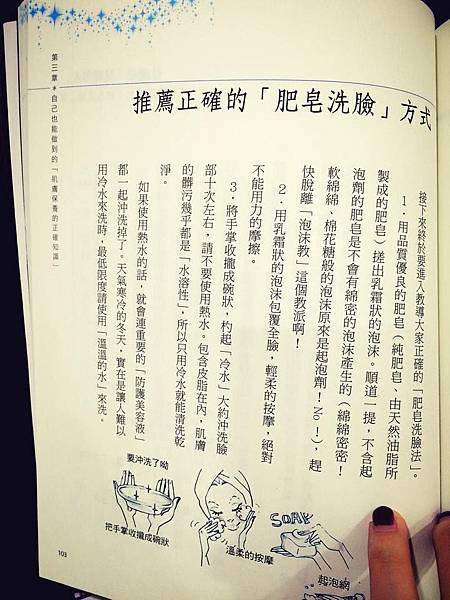 推薦正確的「肥皂洗臉」方式
接下來終於要進入教導大家正確的「肥皂洗臉法」。
1．用品質優良的肥皂（純肥皂、由天然油脂所
製成的肥皂）搓出乳霜狀的泡沫。順道一提，不含起
泡劑的肥皂是不會有綿密的泡沫產生的（綿綿密密！
軟綿綿、棉花糖般的泡沫原來是起泡劑！No！），趕
快脫離「泡沫教」這個教派啊！
2．用乳霜狀的泡沫包覆全臉，輕柔的按摩，絕對
不能用力的摩擦。
3．將手掌收攏成碗狀，杓起「冷水」大約沖洗臉
部十次左右，請不要使用熱水。包含皮脂在內，肌膚
的髒污幾乎都是「水溶性」，所以只用冷水就能清洗乾
淨。
如果使用熱水的話，就會連重要的「防護美容液」
都一起沖洗掉了。天氣寒冷的冬天，實在是讓人難以
用冷水來洗時，最低限度請使用「溫溫的水」來洗。
第三章＊自己也能做到的「肌膚保養的正確知識」
SOAP
起泡網
溫柔的按摩
要沖洗了呦
把手掌收攏成碗狀
103